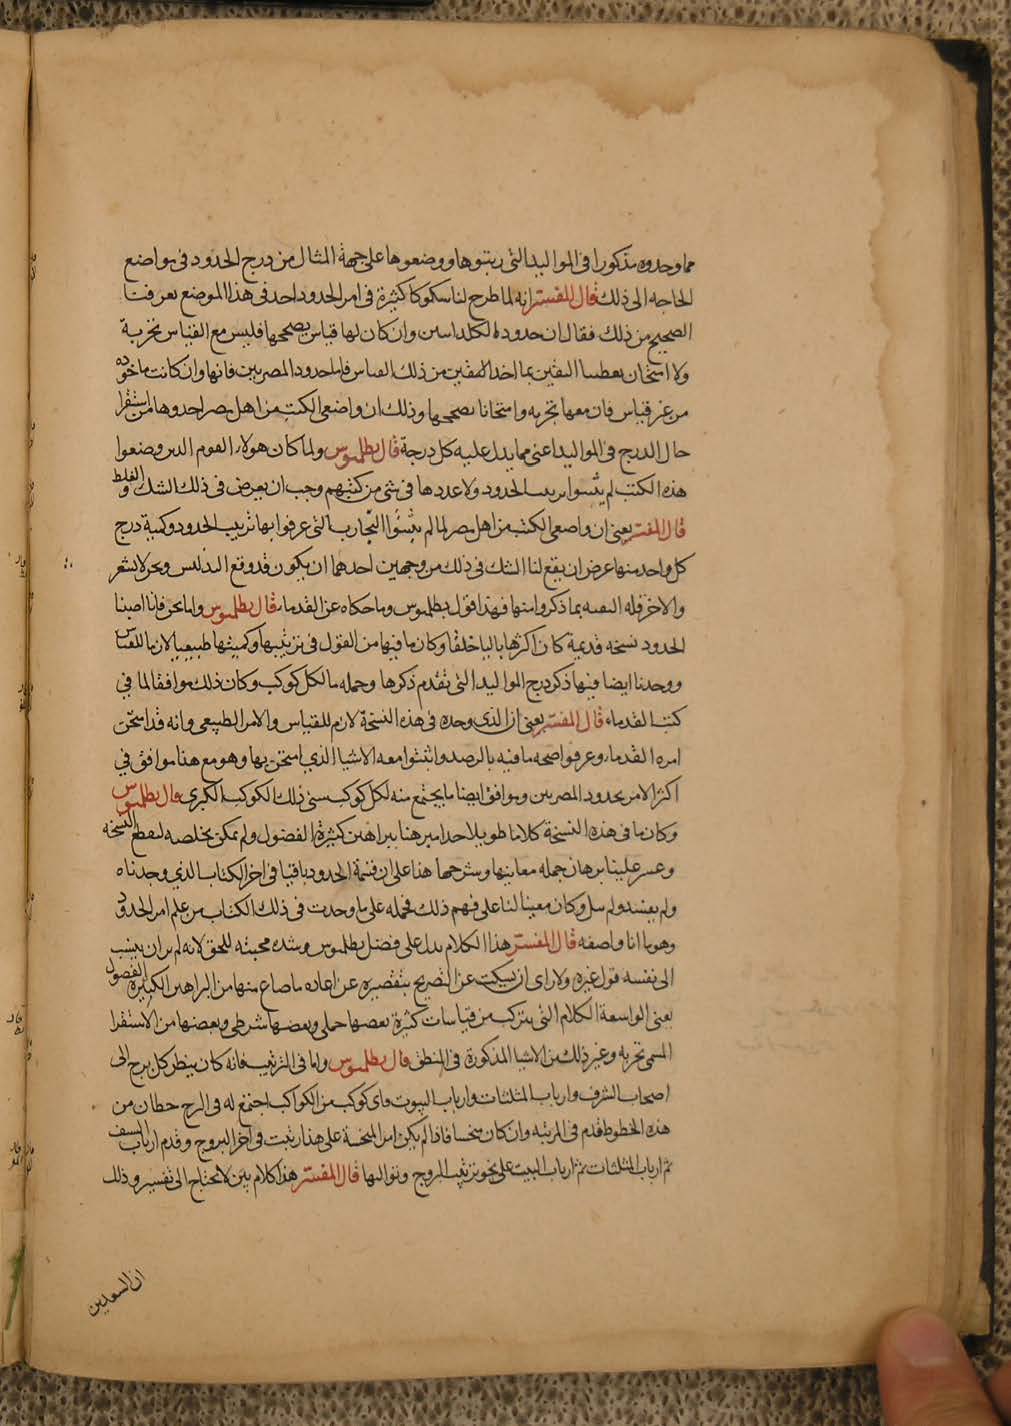 مما وجدوه مذكورا فى المواليد التى رتبوها ووضعوها على جهة المثال من درج الحدود فى مواضع
الحاجه الى ذلك قال المفسر انه لما طرح لنا سكوكا كثيرة فى امر الحدود احد فى هذا الموضع يعرفنا
الصحيح من ذلك فقال ان حدود الكلدانيين وان كان لها قياس يصححها فليس مع القياس تجربة
ولا امتحان يعطينا اليقين بما اخذ من ذلك القياس فاما حدود المصريين فانها وان كانت ماخوذه
من غير قياس فان معها تجربه وامتحانا يصححها وذلك ان واضعى الكتب من اهل مصر اخذوها من استقرا
حال الدرج فى المواليد اعنى مما يدل عليه كل درجة قال بطلميوس ولما كان هولاء القوم الدين وضعوا
هذه الكتب لم يثبتوا ترتيب الحدود ولا عددها فى شى من كتبهم وجب ان يعرض فى ذلك الشك والغلط
قال المفسر يعنى ان واضعى الكتب من اهل مصر لما لم يثبتوا التجارب التى عرفوا بها ترتيب الحدود وكمية درج
كل واحد منها عرض ان يقع لنا الشك فى ذلك من وجهين احدهما ان يكون قد وقع التدليس ونحن لا نشعر
والاخر قله الثقه بما ذكروا منها فهذا قول بطلميوس وما حكاه عن القدماء قال بطلميوس واما نحن فانا اصبنا
الحدود نسخه قديمة كان اكثرها باليا خلقا وكان ما فيها من القول فى ترتيبها وكميتها طبيعيا لازما للقياس
ووجدنا ايضا فيها ذكر درج المواليد التى تقدم ذكرها وجمله ما لكل كوكب وكان ذلك موافقا لما في
كتب القدماء قال المفسر يعنى ان الذى وجده فى هذه النسخة لازم للقياس والامر الطبيعى وانه قد امتحن
امره القدماء وعرفوا صحه ما فيه بالرصد واثبتوا معه الاشيا الذي امتحن بها وهو مع هذا موافق في
اكثر الامر بحدود المصريين وموافق ايضا ما يجتمع منه لكل كوكب سنى ذلك الكوكب الكبرى قال بطلميوس
وكان ما فى هذه النسخة كلاما طويلا جدا مبرهنا ببراهين كثيرة الفصول ولم يمكن تخلصه لتقطع النسخه
وعسر علينا برهان جمله معانيها وشرحها هذا على ان قسمة الحدود باقيا فى اخر الكتاب الذي وجدناه
ولم يفسد ولم وكان معينا لنا على فهم ذلك فجمله على ما وجدت فى ذلك الكتاب من علم امر الحدود
وهو ما انا واصفه قال المفسر هذا الكلام يدل على فضل بطلميوس وشده محبته للحق لانه لم ير ان ينسب
الى نفسه قول غيره ولا راى ان يسكت عن التصريح بتقصيره عن اعاده ما ضاع منها من البراهين الكثيرة الفصول
يعنى الواسعة الكلام التى يتركب من قياسات كثيرة بعضها حملى وبعضها شرطى وبعضها من الاستقرا
المسمى تجربه وغير ذلك من الاشيا المذكورة فى المنطق قال بطلميوس واما فى الترتيب فانه كان ينظر كل برج الى
اصحاب الشرف وارباب المثلثات وارباب البيوت واى كوكب من الكواكب اجتمع له فى البرج حظان من
هذه الخطوط قدم فى المرتبه وان كان منحسا فاذا لم يكن امر المنحسة على هذا رتبت فى اخر البروج وقدم ارباب السف
ثم ارباب المثلثات ثم ارباب البيت على نحو ترتيب البروج وتواليها قال المفسر هذا كلام بين لا يحتاج الى تفسير وذلك
ان السعدين